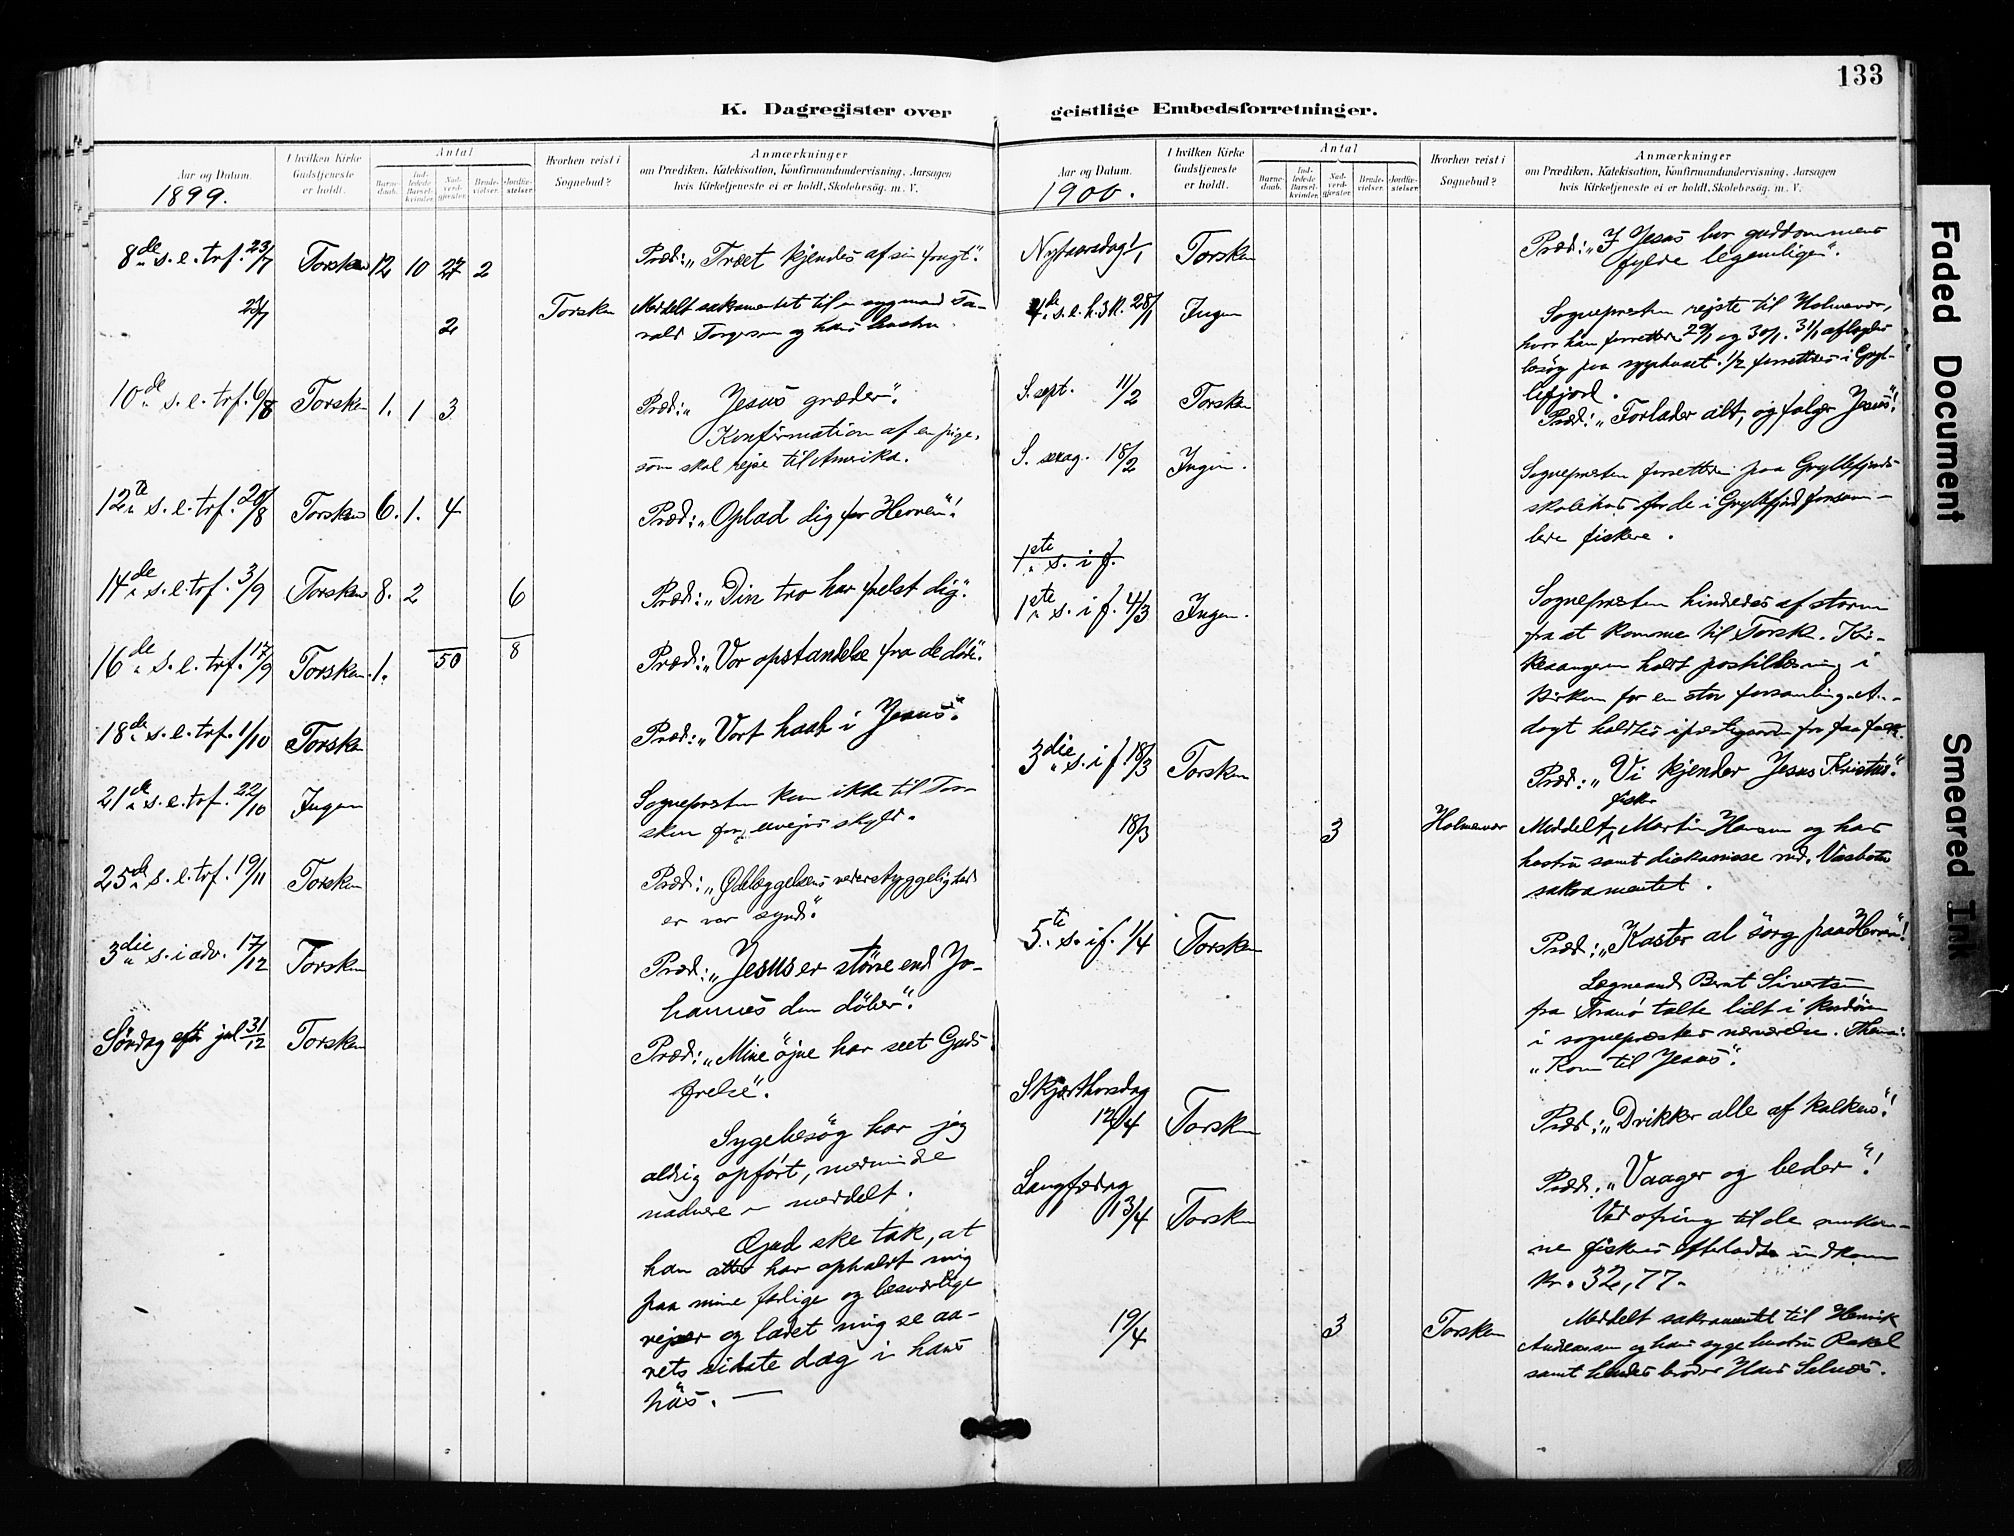 133
K. Dagregister over geistlige Embedsforretninger.
Aar og Datum.
1899.
I hvilken Kirke Gudstjeneste er holdt.
Antal
Barne-daab.
Ind-ledede Barsel-kvinder.
Nad-verd-gjester.
Brude-vielser.
Jordfæ-stelser.
Hvorhen reist i Sognebud?
Anmærkninger
om Prædiken, Katekisation, Konfirmandundervisning, Aarsagen
hvis Kirketjeneste ei er holdt, Skolebesøg. m. V.
8de s. e. tref. 23/7 Torsken 12 10 27 2 Præd: „Træet kjendes af sin frugt“.
23/7 2 Torsken Meddelt sakramentet til en syg mand
Torgersen og hans hustru.
10de s. e. trf. 6/8 Torsken 1. 1 3 Præd: „Jesus græder“.
Konfirmation af en pige,
som skal rejse til Amerika.
12te s. e. trf. 20/8 Torsken 6. 1. 4 Præd: „Oplad dig for Herren“!
14de s. e. trf. 3/9 Torsken 8. 2 6 Præd: „Din tro har frelst dig“.
16de s. e. trf. 17/9 Torsken 1. 50 8 Præd: „Vor opstandelse fra de døde“.
18de s. e. trf. 1/10 Torsken Præd: „Vort haab i Jesus“.
21de s. e. trf. 22/10 Ingen Sognepresten kom ikke til Tor-
sken for uvejrs skyld.
25de s. e. trf. 19/11 Torsken Præd: „Ødelæggelsens vederstyggelighed
er vor synd“.
3die s. i adv. 17/12 Torsken Præd: „Jesus er større end Jo-
hannes den døber“.
Søndag eft. jul 31/12 Torsken Præd: „Mine øjne har seet Guds
frelse“.
Sygebesøg har jeg
aldrig opført, medmindre
nadvere er meddelt.
Gud ske tak, at
han atter har opholdt mig
paa mine farlige og besværlige
rejser og ladet mig se aa-
rets sidste dag i hans
hus. —
Aar og Datum.
1900.
I hvilken Kirke Gudstjeneste er holdt.
Antal
Barne-daab.
Ind-ledede Barsel-kvinder.
Nad-verd-gjester.
Brude-vielser.
Jordfæ-stelser.
Hvorhen reist i Sognebud?
Anmærkninger
om Prædiken, Katekisation, Konfirmandundervisning, Aarsagen
hvis Kirketjeneste ei er holdt, Skolebesøg. m. V.
Nytaarsdag 1/1 Torsken Præd: „I Jesus bor guddommens
fylde legemligen“.
4de s. e. h. 3 k. 28/1 Ingen Sognepresten rejste til Holmenvær,
hvor han forrettede 29/1 og 30/1. 31/1 aflagdes
besøg paa sygehuset. 1/2 forrettedes i Gryl-
lefjord.
S. sept. 11/2 Torsken Præd: „Forlader alt, og følger Jesus“!
S. sexag. 18/2 Ingen. Sognepresten forrettede paa Gryllefjords
skolehus for de i Gryllefjord forsam-
lede fiskere.
1ste s. i f.
1ste s. i f. 4/3 Ingen. Sognepresten hindredes af storm
fra at komme til Torsk. Kir-
kesangeren holdt postillesning i
kirken for en stor forsamling. An-
dagt holdtes i prestegaarden for faa folk.
3die s. i f. 18/3 Torsken Præd: „Vi kjender Jesus Kristus“.
18/3 3 Holmenvær Meddelt fisker Martin Hansen og hans
hustru samt diakonisse
sakramentet.
5te s. i f. 1/4 Torsken Præd: „Kaster al sorg paa Herren“!
Lægmand Bernt Sivertsen
fra Tranö talte lidt i kordøren
i sogneprestens nærværelse. Thema:
„Kom til Jesus“.
Skjærthorsdag
12/4 Torsken Præd: „Drikker alle af kalken“!
Langfredag
13/4 Torsken Præd: „Vaager og beder“!
Ved ofring til de omkom-
ne fiskeres efterladte indkom
kr. 32,77.
19/4 3 Torsken Meddelt sakramentet til Henrik
Andreassen og hans syge hustru Rakel
samt hendes broder Hans Selnæs.
Faded Document
Smeared Ink